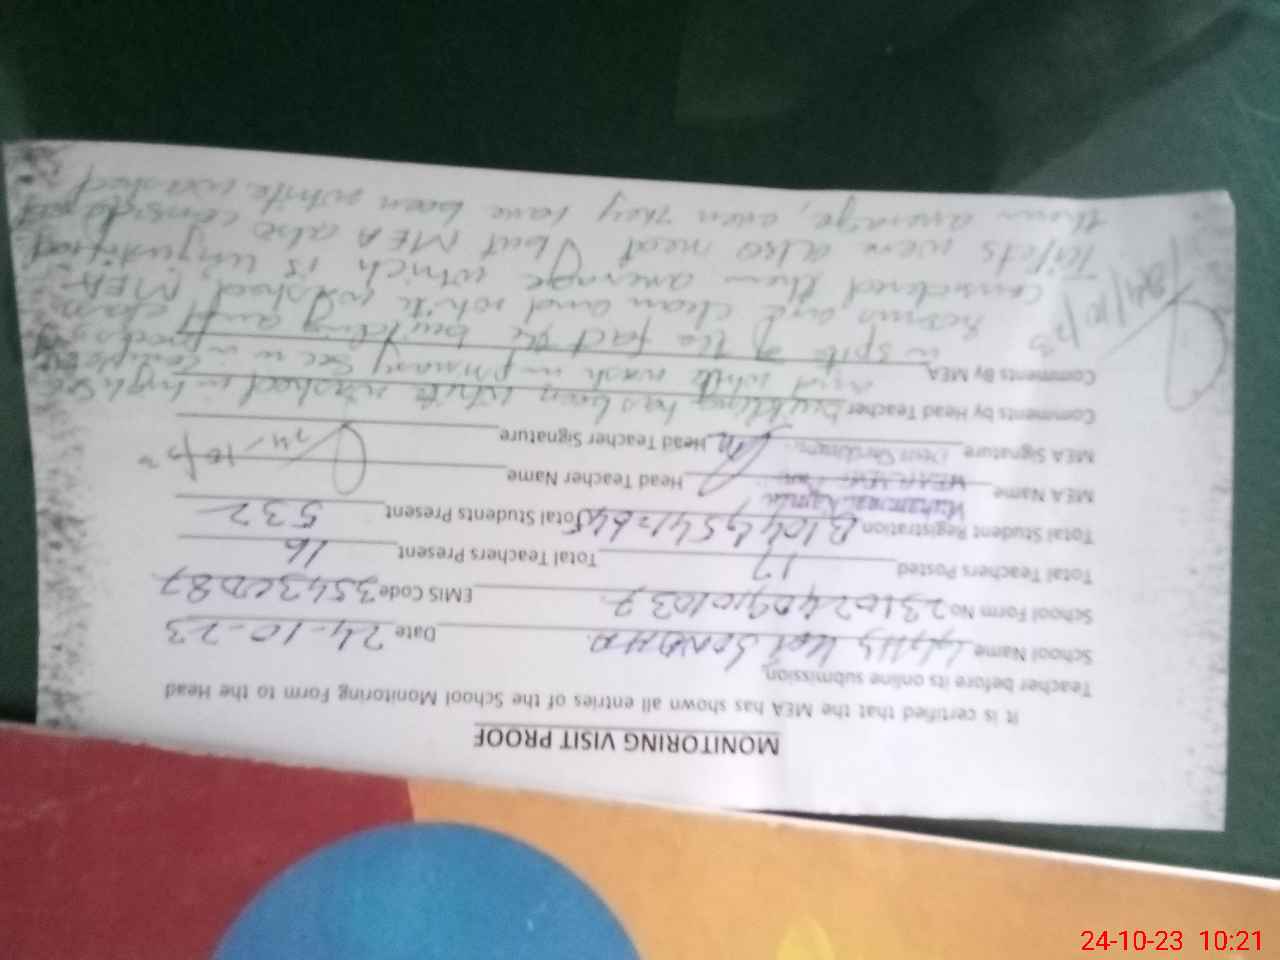 MONITORING VISIT PROOF
It is certified that the MEA has shown all entries of the School Monitoring Form to the Head
Teacher before its online submission.
School Name GGHS Kot Date 24-10-23
School Form No EMIS Code 35430087
Total Teachers Posted 17 Total Teachers Present 16
Total Student Registration 104+541=645 Total Students Present 532
MEA Name Muhammad Head Teacher Name
MEA Signature Head Teacher Signature
24-10/23
Comments by Head Teacher building has been white washed in high sec
and white wash in primary sec is in process
Comments By MEA
in spite of the fact the building and class
rooms are clean and white washed, MEA
considered them average which is unjustified
Toilets were also neat but MEA also considered
them average, even they have been white washed
24/10/23
24-10-23 10:21